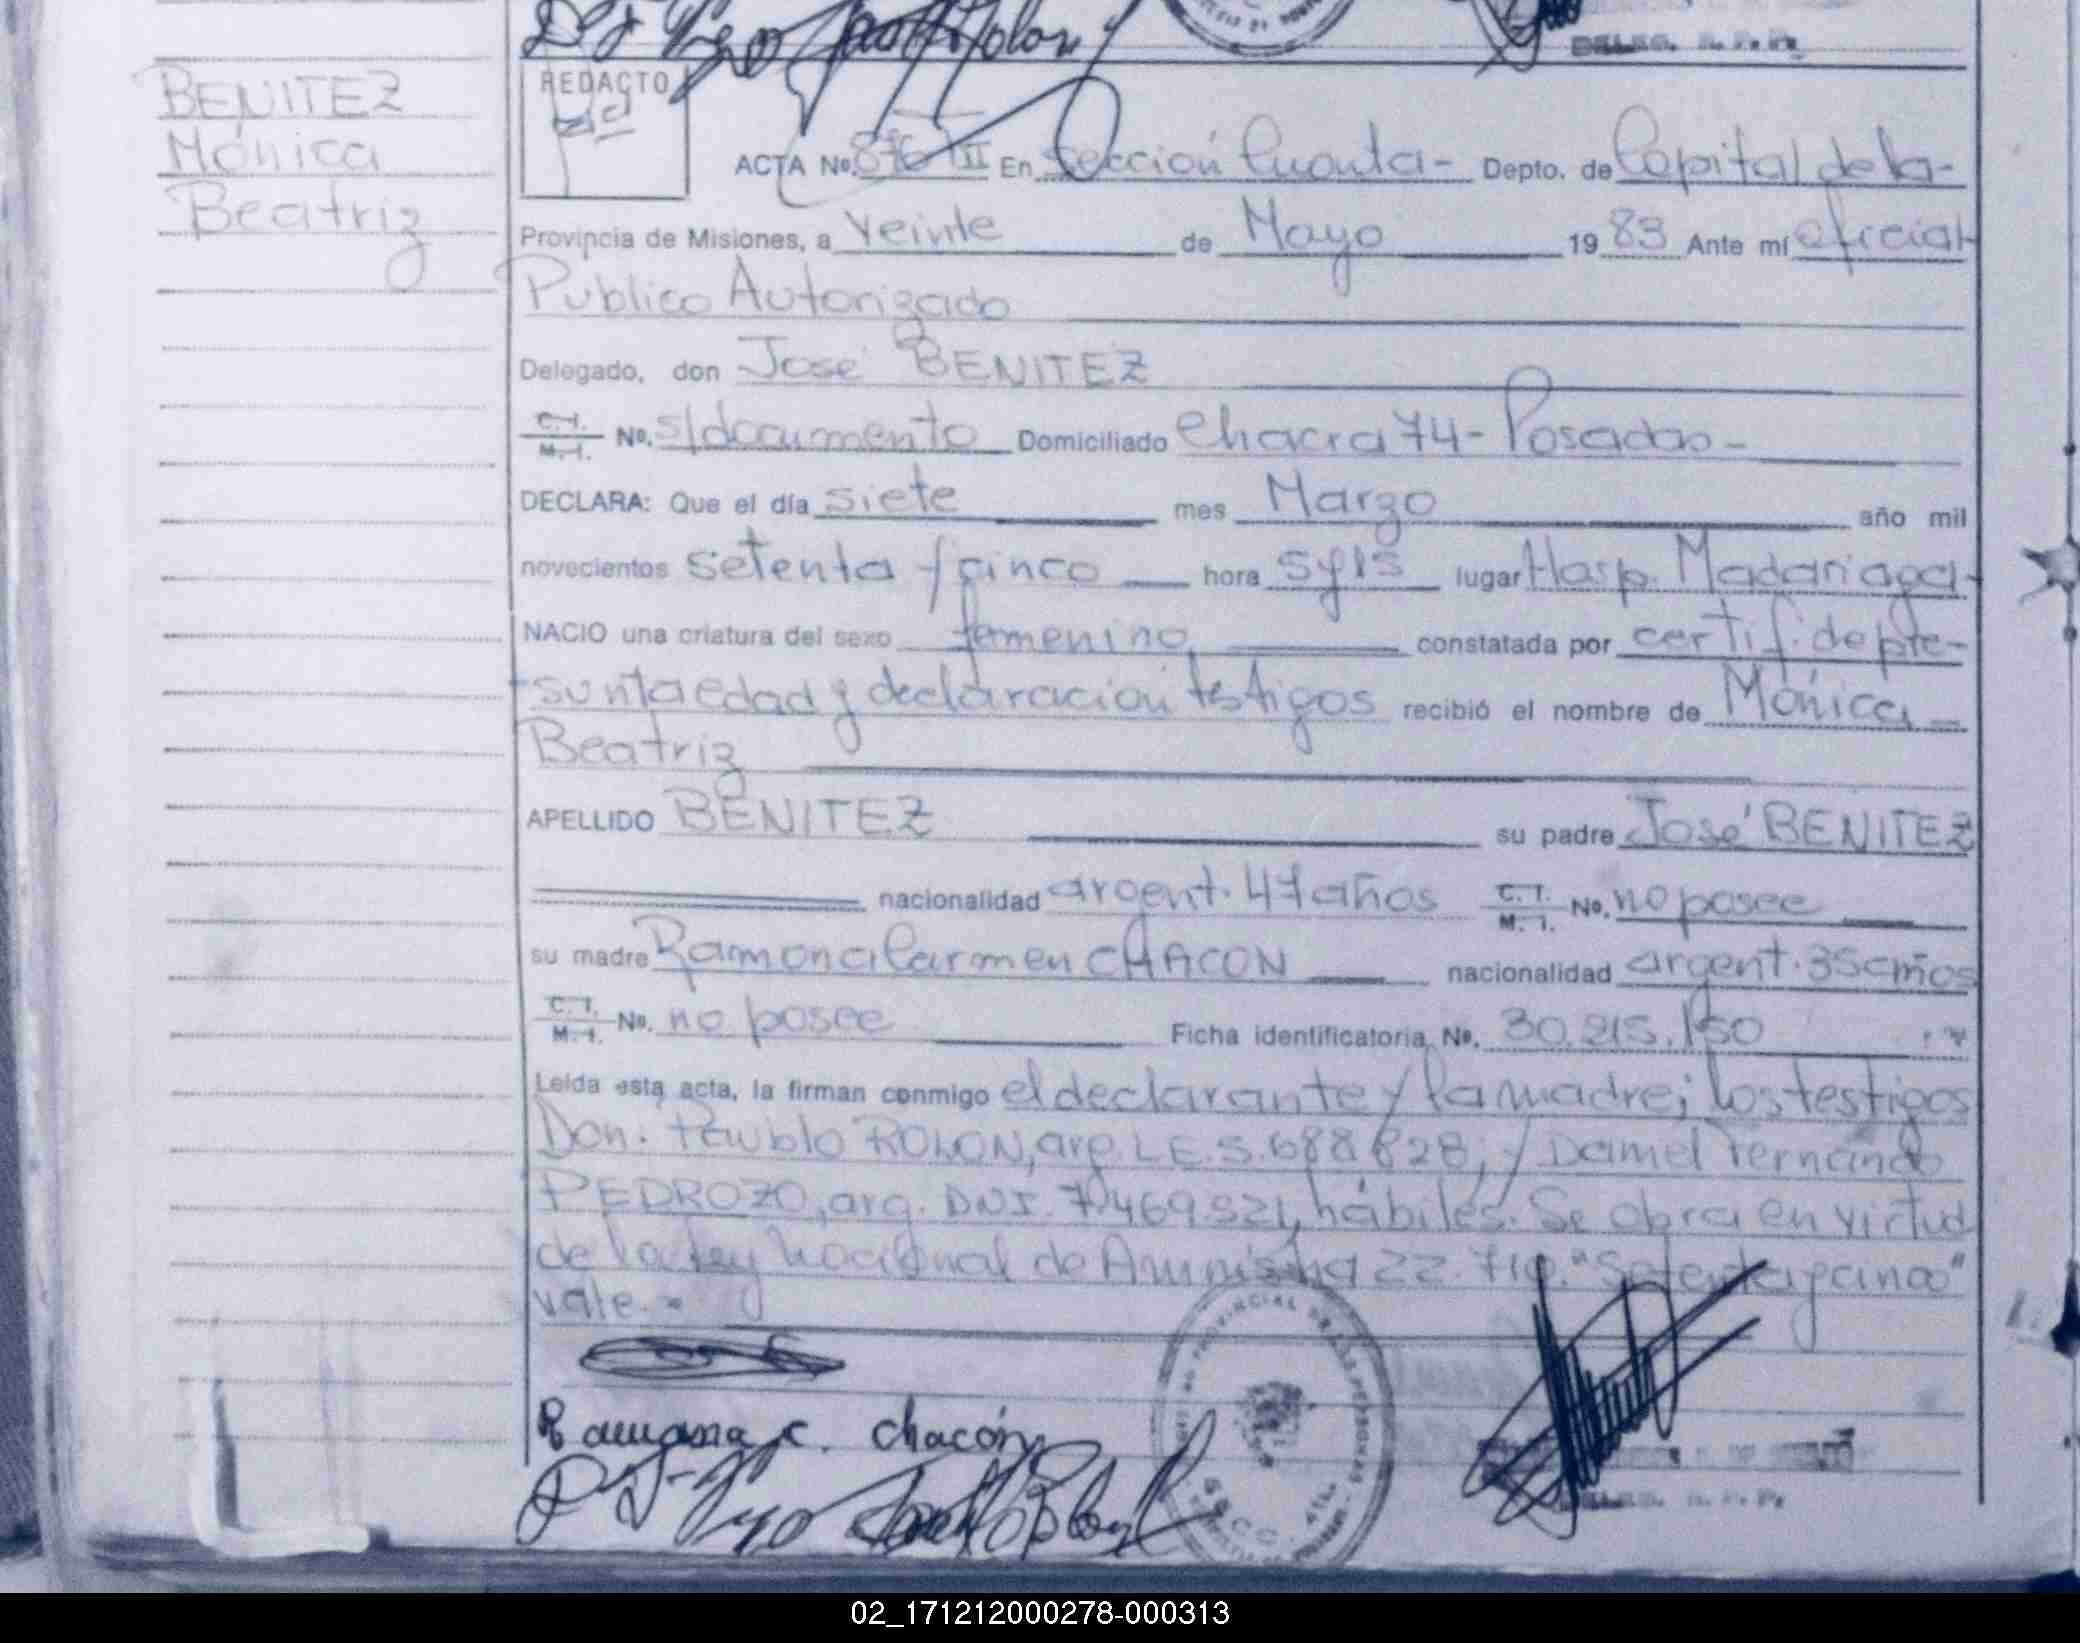 DELEG. R. P. P.
BENITEZ
Mónica
Beatriz
REDACTO
ACTA No. 876 III En sección Cuarta - Depto. de Capital de la -
Provincia de Misiones, a veinte de Mayo 19 83 Ante mí oficial
Publico Autorizado
Delegado, don José BENITEZ
C.I. M.I. No. s/documento Domiciliado Chacra 74 - Posadas -
DECLARA: Que el día siete mes Marzo año mil
novecientos setenta y cinco hora 5y15 lugar Hosp. Madariaga -
NACIO una criatura del sexo femenino constatada por certif. de pre-
sunta edad y declaración testigos recibió el nombre de Mónica
Beatriz
APELLIDO BENITEZ su padre José BENITEZ
nacionalidad argent. 47 años C.I. M.I. No. no posee
su madre Ramona Carmen CHACON nacionalidad argent. 35 años
C.I. M.I. No. no posee Ficha identificatoria No. 30.215.150
Leída esta acta, la firman conmigo el declarante y la madre; los testigos
Don. ROLON, arg. L.E. 5.688.828; y Daniel Fernando
PEDROZO, arg. DNI. 7.469.521, hábiles. Se obra en virtud
de la ley nacional de Amnistia 22.710. "Setenta y cinco"
vale. -
Ramona C. Chacón
DELEG. R. P. P.
02_171212000278-000313